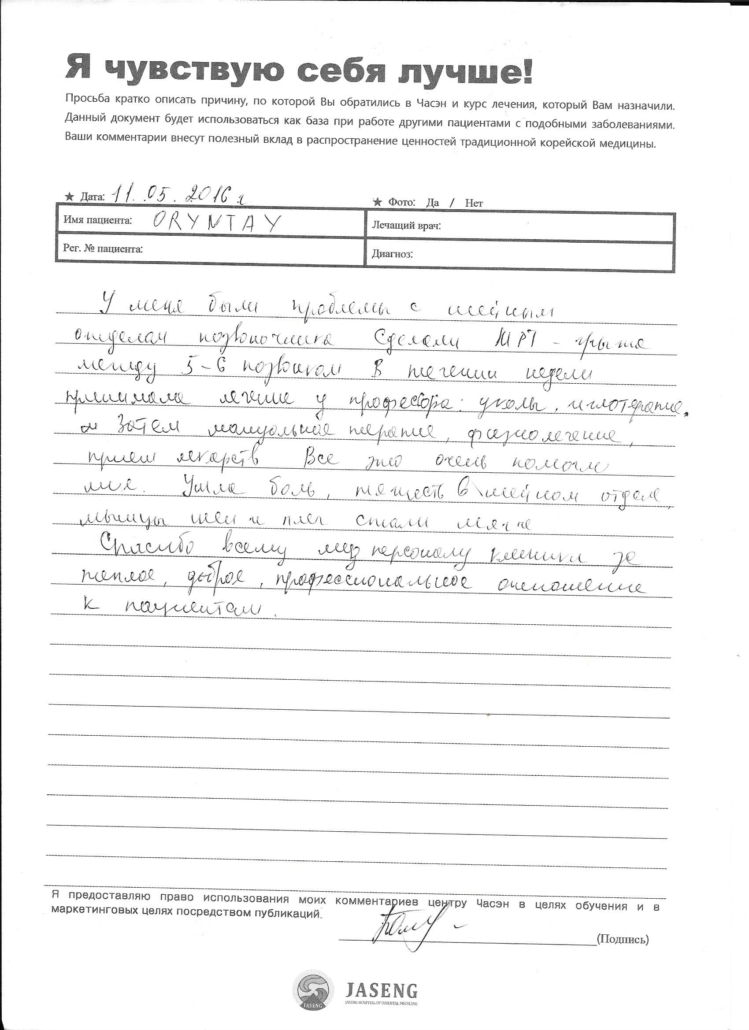 Я чувствую себя лучше!
Просьба кратко описать причину, по которой Вы обратились в Часэн и курс лечения, который Вам назначили.
Данный документ будет использоваться как база при работе другими пациентами с подобными заболеваниями.
Ваши комментарии внесут полезный вклад в распространение ценностей традиционной корейской медицины.
★ Дата: 11.05.2016 г
★ Фото: Да / Нет
Имя пациента: ORYNTAY
Лечащий врач:
Рег. № пациента:
Диагноз:
У меня были проблемы с шейным
отделам позвоночника Сделали МРТ - грыжа
между 5-6 позвонком В течении недели
принимала лечение у професора: уколы, иглотерапие,
и Затем мануольное терапие, физиолечение,
прием лекарств Все это очень помогли
мне. Ушла боль, тяжесть в шейном отделе,
мышцы шеи и плеч стали мягче
Спасибо всему мед персоналу клиники за
теплое, доброе, профессиональное отношение
к пациентам.
Я предоставляю право использования моих комментариев центру Часэн в целях обучения и в
маркетинговых целях посредством публикаций.
(Подпись)
JASENG
JASENG HOSPITAL OF ORIENTAL MEDICINE